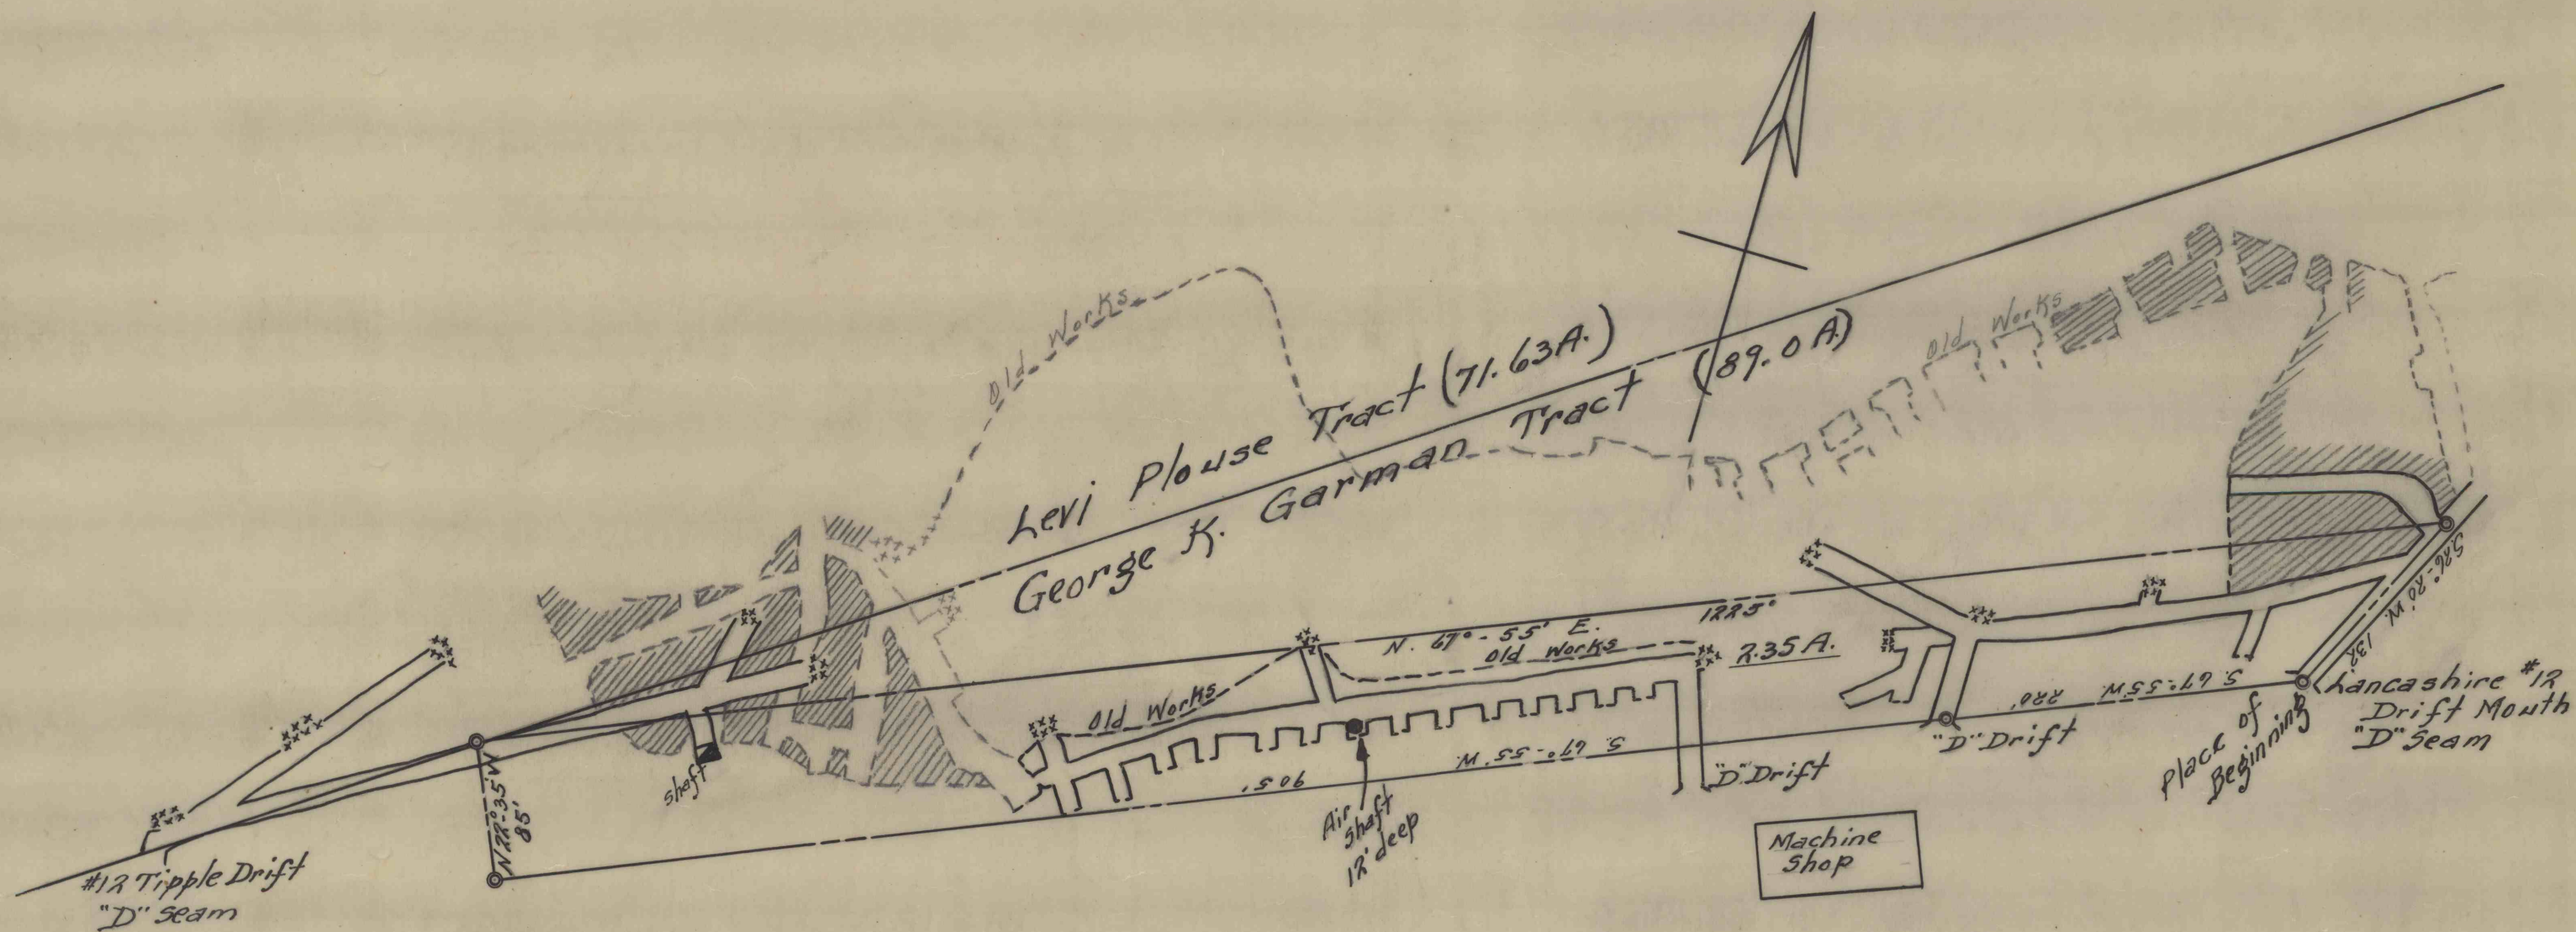 Old Works
Levi Plouse Tract (71.63A.)
George K. Garman Tract (89.0 A.)
Old Works
N. 67°-55' E.
1225'
Old Works
2.35 A.
Old Works
S. 67°-55' W.
905'
S. 67°-55' W.
220'
S. 26°-20' W.
132
Lancashire #12
Drift Mouth
"D" Seam
Place of
Beginning
"D" Drift
"D" Drift
Machine
Shop
Air
Shaft
12' deep
Shaft
N 22°-35' W
85'
#12 Tipple Drift
"D" Seam